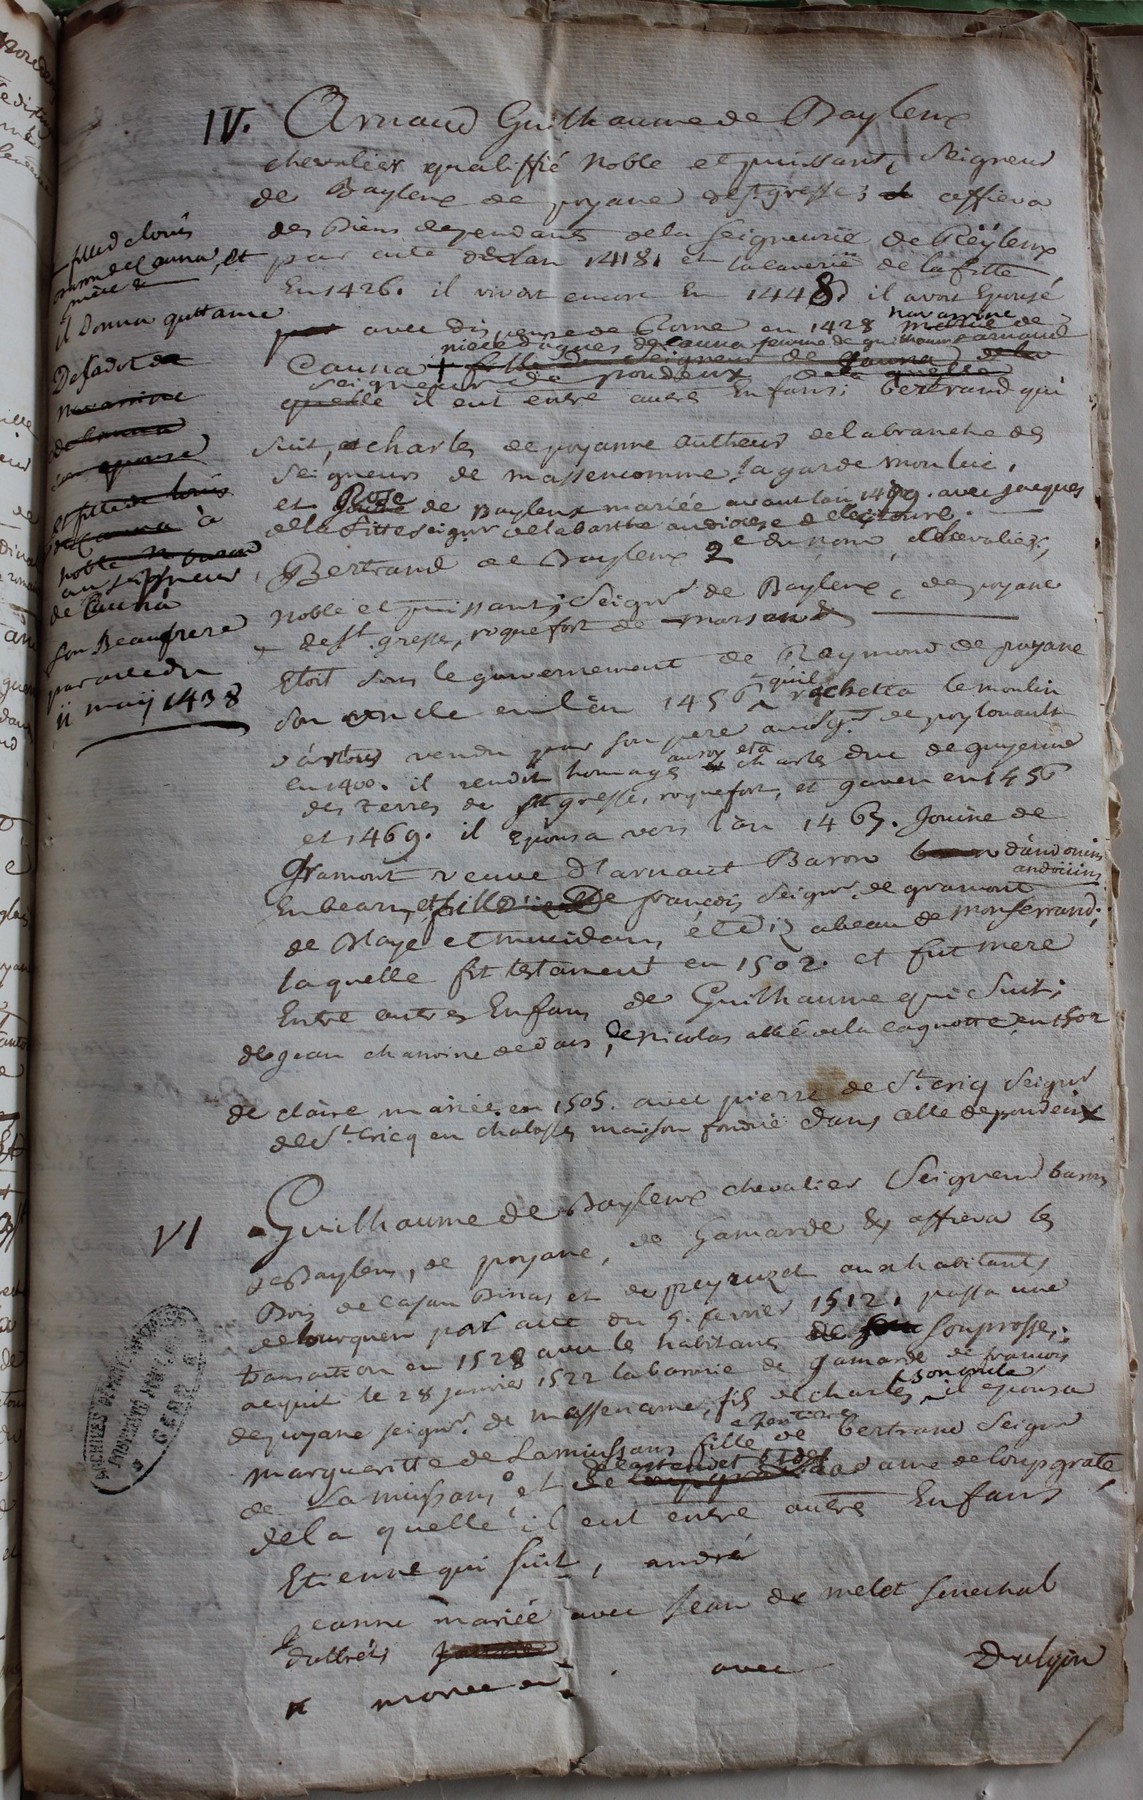 IV. Arnaud Guilhaume de Baylenx
chevalier qualiffié noble et puissant, Seigneur
de Baylenx de poyane de st gresse; affieva
des biens dependants de la seigneurie de Bëÿlenx
par acte de l'an 1418. et la caverie de lafitte
En 1426. il vivoit encore En 1448. il avoit Epousé
avec dispense de Rome en 1428 navarrine de
niéce d'agnes de cauna femme de guilhaume arnaud
Cauna + fille du Seigneur de Cauna de la
seigneur de poudenx de la quelle
quelle il eut entre autres Enfans; bertrand qui
suit, charles de poyanne autheur de la branche des
seigneurs de massencomme lagarde monluc,
et Rose de Baylenx mariée avant l'an 1499. avec jacques
de la fitte seignr de la barthe au diocese de lectoure.
Bertrand de Baylenx 2e du nom, chevalier,
noble et puissant, Seignr de Baylenx, de poyane
de st gresse, roquefort de marsan
Etoit sous le gouvernement de Raymond de poyane
son oncle en l'an 1456 qu'il rachetta le moulin
vendu par son pere au sgr de poyloault
en 1400. il rendit homage au roy et a charles duc de guyenne
des terres de st gresse, roquefort, et gaven en 1456
et 1469. il Epousa vers l'an 1465. Jouine de
Gramont veuve d'arnaut Baron d'andouins
andouins
En bearn, et fille de françois Seignr de gramont
de Blaye et mucidan, et d'izabeau de monferrand;
laquelle fit testament en 1502. et fut mere
Entre autres Enfans de Guilhaume qui suit;
de jean chanoine de dax, de nicolas abbé de la cagnotte en 1502
de claire mariée en 1505. avec pierre de St. cricq Seignr
de St. Cricq en chalosse, maison fondue dans celle de poudenx
VI Guilhaume de Baylenx chevalier Seigneur baron
de Baylenx, de poyane, de Gamarde & affieva les
Bois de Casau Binas et de peyruzet aux habitants
de lourquen par acte du 9. fevrier 1512. passa une
transaction en 1528 avec les habitans de souprosse,
acquit le 28 janvier 1522 la baronie de gamarde de francois
de poyane seignr. de massencome, fils de charles, son oncle il epousa
margueritte de Lamiussans fille de bertrand Seignr
de Lamiussans et de dame de loupgrate
de la quelle il eut entre autres Enfans
Etienne qui suit, andré
jeanne mariée avec Jean de melet senechal
d'albret
mariée en avec Dulyon
fille de louis
baron de Cauna, et
niéce de
il donna quittance
De la dot de
navarrine
de Cauna
son epouse
et fille de louis
de Cauna à
noble
seigneur
de Cauna
son Beaufrere
par acte du
11 may 1438